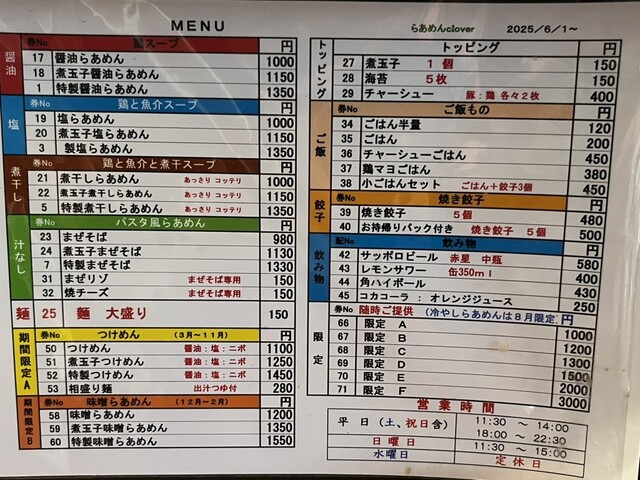 MENU
らあめんclover 2025/6/1～
醤油
券No 鶏スープ 円
17 醤油らあめん 1000
18 煮玉子醤油らあめん 1150
1 特製醤油らあめん 1350
塩
券No 鶏と魚介スープ 円
19 塩らあめん 1000
20 煮玉子塩らあめん 1150
3 製塩らあめん 1350
煮干し
券No 鶏と魚介と煮干スープ 円
21 煮干しらあめん あっさり コッテリ 1000
22 煮玉子煮干しらあめん あっさり コッテリ 1150
5 特製煮干しらあめん あっさり コッテリ 1350
汁なし
券No パスタ風らあめん 円
23 まぜそば 980
24 煮玉子まぜそば 1130
7 特製まぜそば 1330
31 まぜリゾ まぜそば専用 150
32 焼チーズ まぜそば専用 150
麺 25 麺 大盛り 150
期間限定A
券No つけめん (3月～11月) 円
50 つけめん 醤油:塩:ニボ 1100
51 煮玉子つけめん 醤油:塩:ニボ 1250
52 特製つけめん 醤油:塩:ニボ 1450
53 相盛り麺 出汁つゆ付 280
期間限定B
券No 味噌らあめん (12月～2月) 円
58 味噌らあめん 1200
59 煮玉子味噌らあめん 1350
60 特製味噌らあめん 1550
トッピング
トッピング 円
27 煮玉子 1個 150
28 海苔 5枚 150
29 チャーシュー 豚:鶏 各々2枚 400
ご飯
券No ご飯もの 円
34 ごはん半量 120
35 ごはん 200
36 チャーシューごはん 450
37 鶏マヨごはん 380
38 小ごはんセット ごはん+餃子3個 450
餃子
券No 焼き餃子 円
39 焼き餃子 5個 480
40 お持帰りパック付き 焼き餃子 5個 500
飲み物
配No 飲み物 円
42 サッポロビール 赤星 中瓶 580
43 レモンサワー 缶350ml 400
44 角ハイボール 430
45 コカコーラ : オレンジジュース 250
限定
券No 随時ご提供 (冷やしらあめんは8月限定) 円
66 限定 A 1000
67 限定 B 1200
68 限定 C 1300
69 限定 D 1500
70 限定 E 2000
71 限定 F 3000
営業時間
平日 (土、祝日含) 11:30 ～ 14:00
18:00 ～ 22:30
日曜日 11:30 ～ 15:00
水曜日 定休日